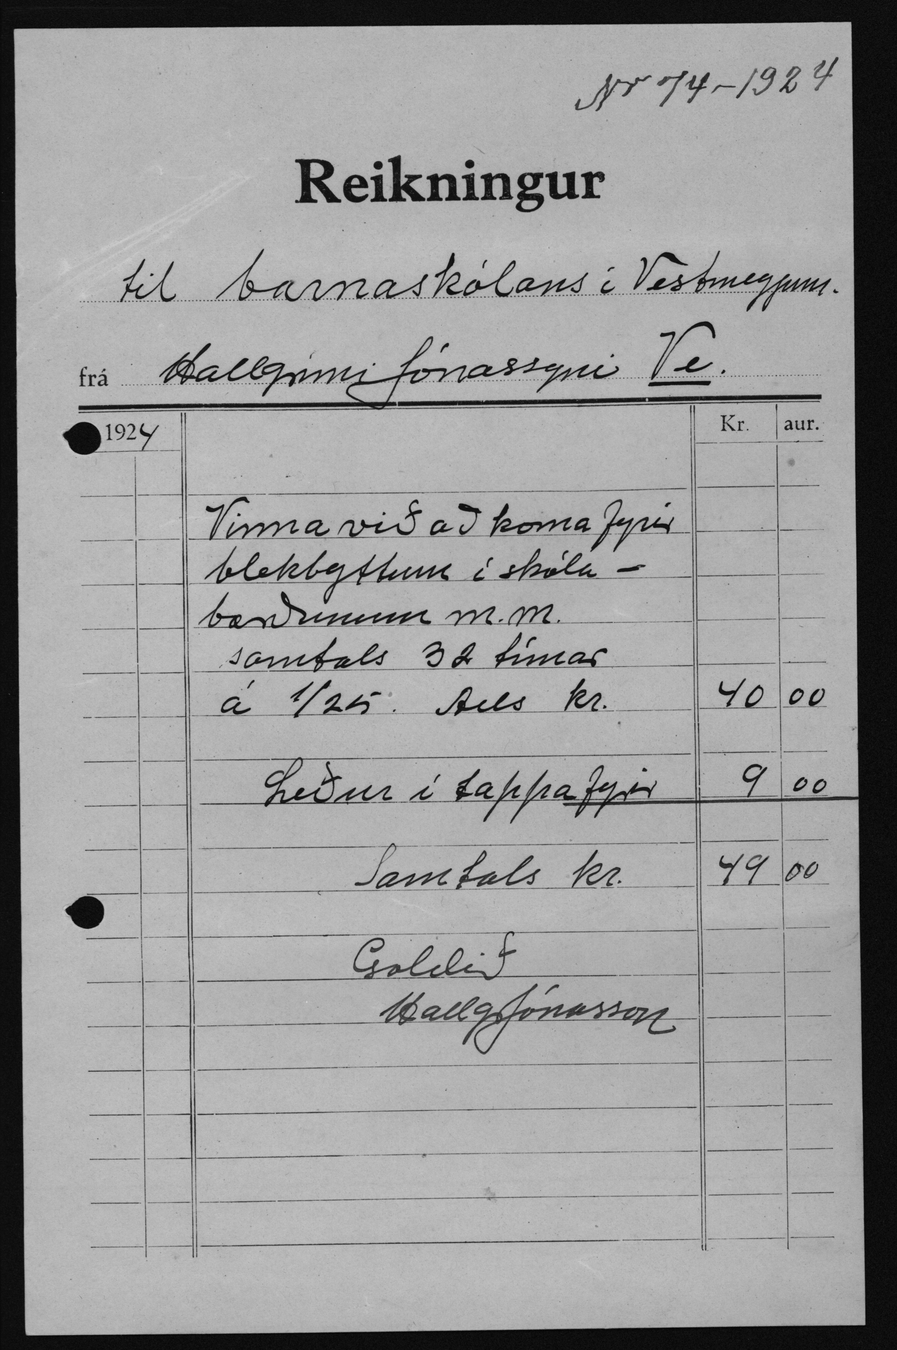 Nr 74-1924
Reikningur
til barnaskólans í Vestmeyjum.
frá Hallgrími Jónassyni Ve.
1924 Kr. aur.
Vinna við að koma fyrir
blekbyttum í skóla-
borðunum m.m.
samtals 32 tímar
á 1/25. Alls kr. 40 00
Leður í tappa fyrir 9 00
Samtals kr. 49 00
Goldið
Hallgr Jónasson